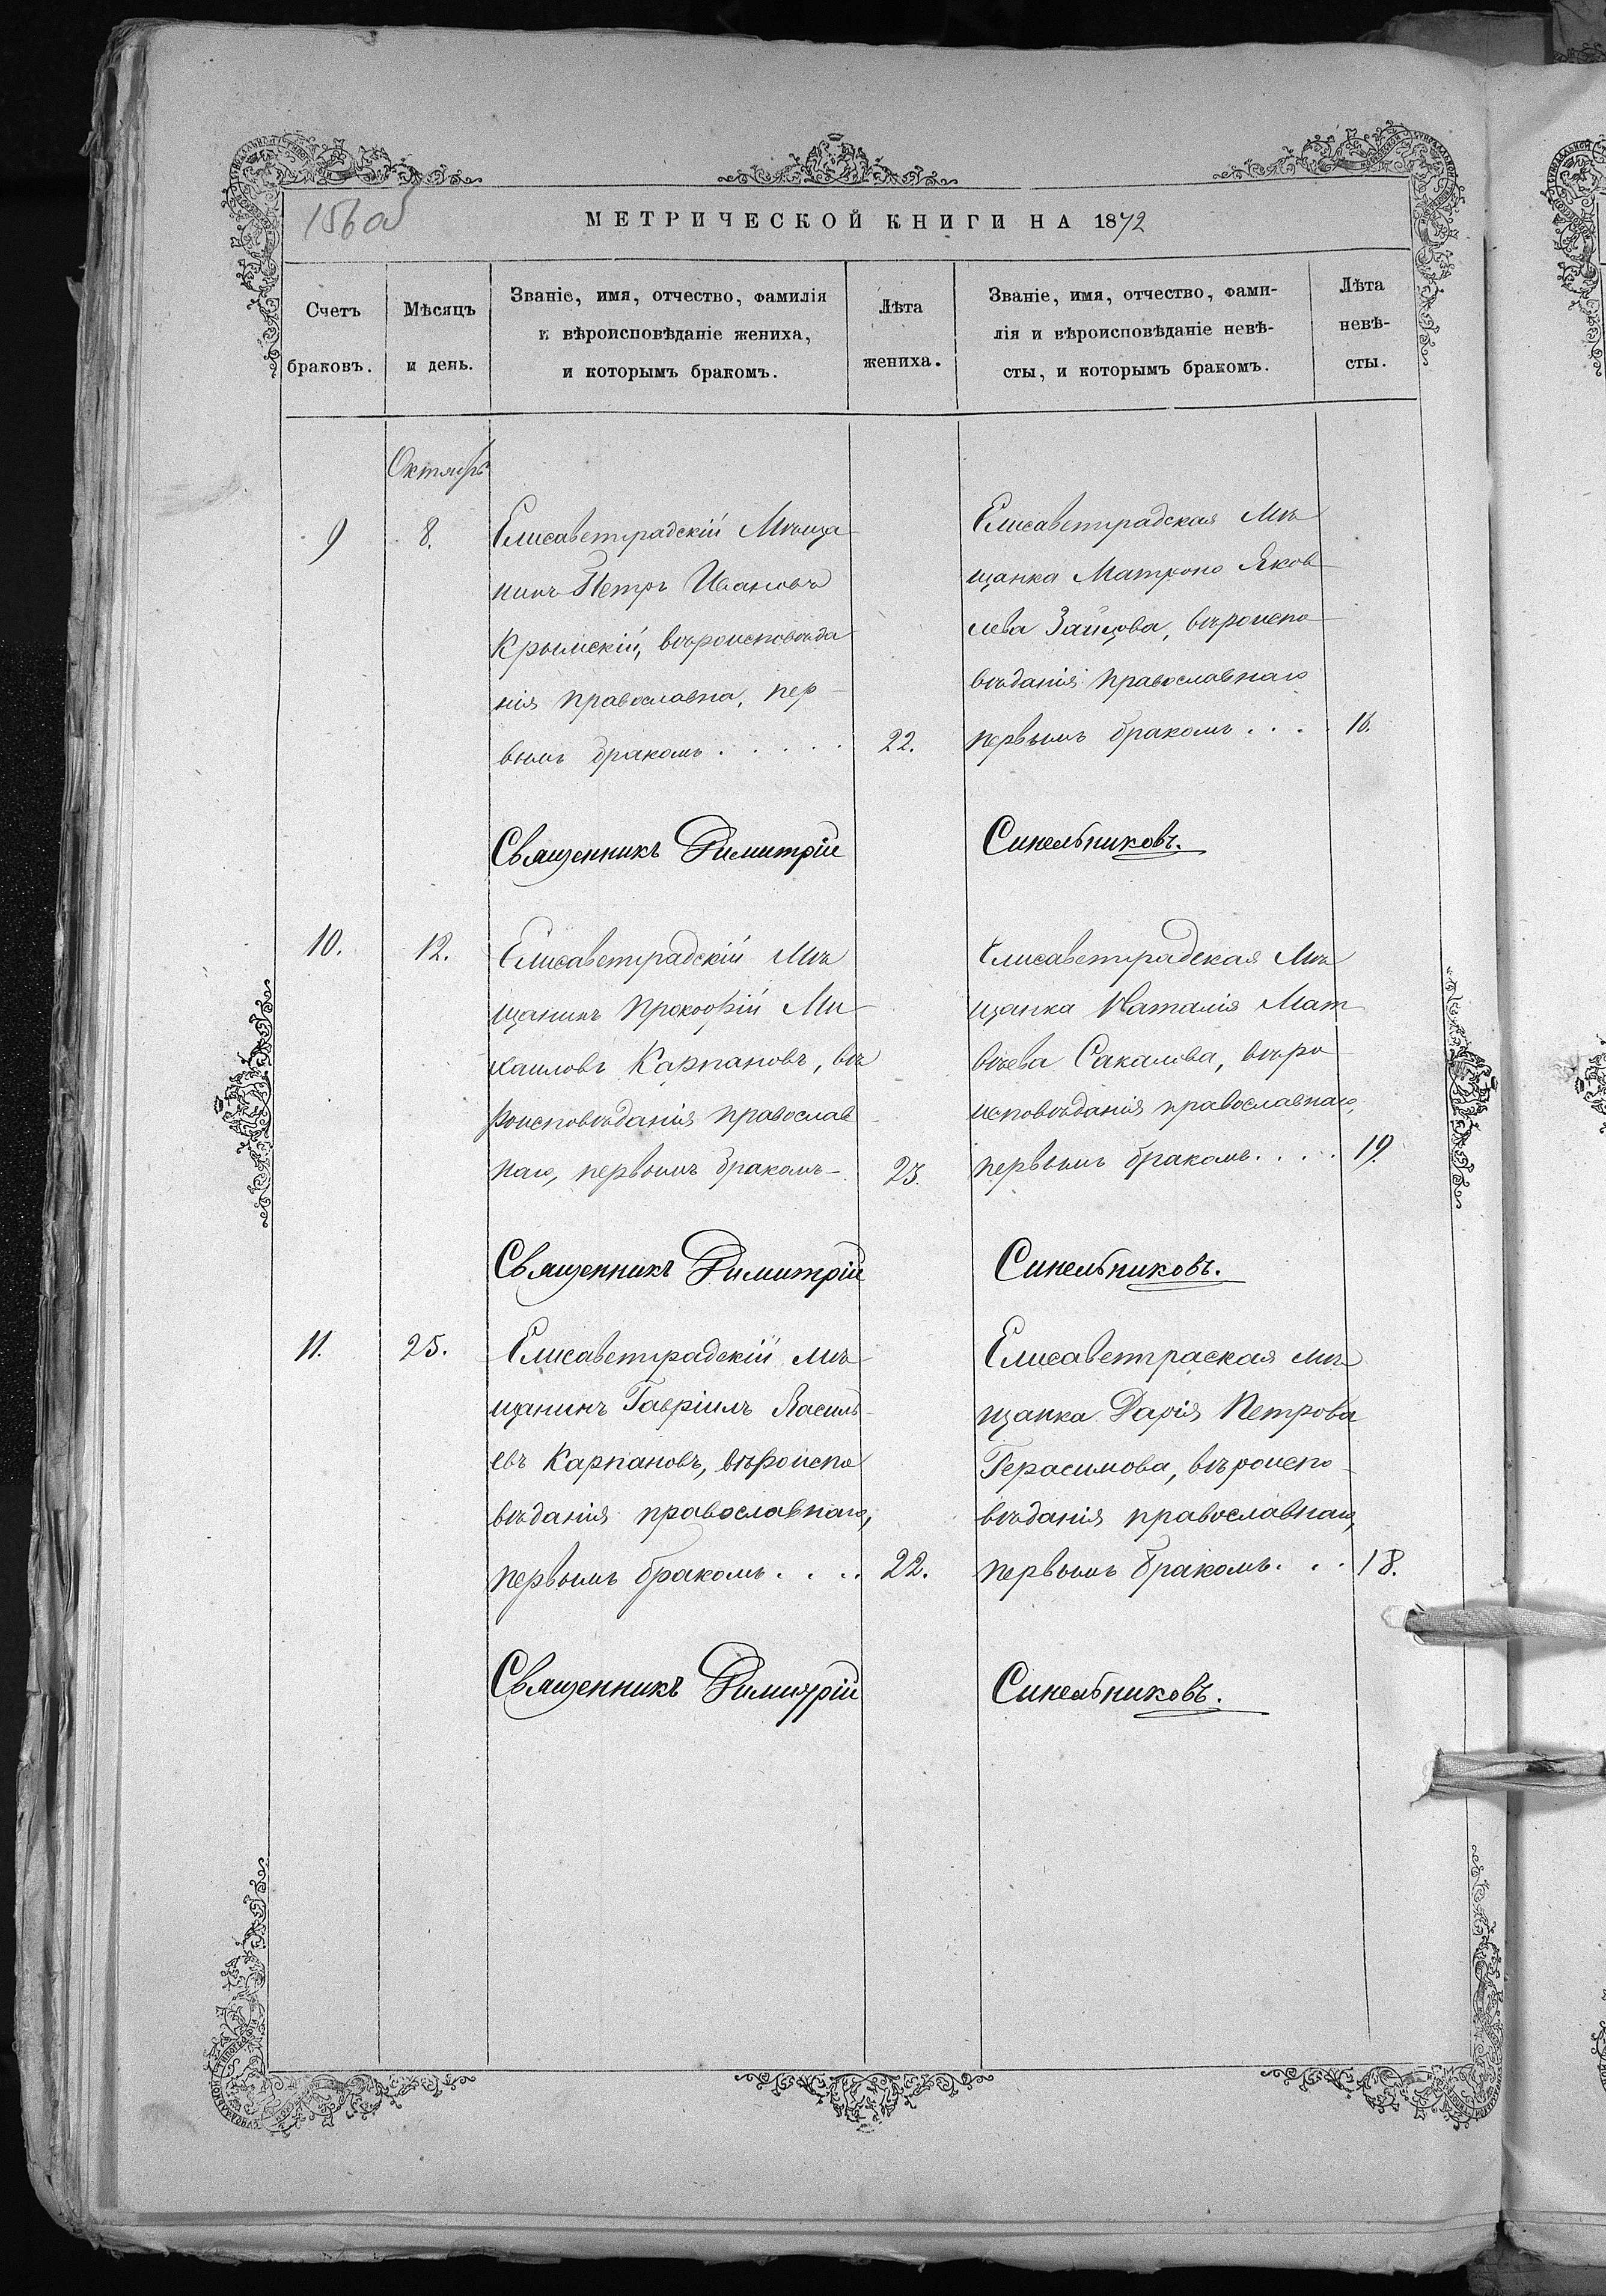 156об
МЕТРИЧЕСКОЙ КНИГИ НА 1872
Счетъ
браковъ.
Мѣсяцъ
и день.
Званіе, имя, отчество, фамилія
и вѣроисповѣданіе жениха,
и которымъ бракомъ.
Лѣта
жениха.
Званіе, имя, отчество, фами-
лія и вѣроисповѣданіе невѣ-
сты, и которымъ бракомъ.
Лѣта
невѣ-
сты.
Октябрь
9
8.
Елисаветградскій Мѣща
нинъ Петръ Ивановъ
Крымскій, вѣроисповѣда
нія православна, пер-
вымъ бракомъ . . . . .
22.
Елисаветградская Мѣ
щанка Матрона Яков-
лева Зайцова, вѣроиспо-
вѣданія православнаго
первымъ бракомъ . . . .
16.
Священникъ Димитрій
Синельниковъ.
10.
12.
Елисаветградскій Мѣ
щанинъ Прокофій Ми-
хаиловъ Карпановъ, вѣ
роисповѣданія православ-
наго, первымъ бракомъ-.
23.
Елисаветградская Мѣ
щанка Наталія Мат-
вѣева Сакалова, вѣро-
исповѣданія православнаго,
первымъ бракомъ. . . . .
19.
Священникъ Димитрій
Синельниковъ.
11.
25.
Елисаветградскій мѣ-
щанинъ Гавріилъ Василь-
евъ Карпановъ, вѣроиспо
вѣданія православнаго,
первымъ бракомъ. . . .
22.
Елисаветраская мѣ
щанка Дарія Петрова
Герасимова, вѣроиспо-
вѣданія православнаго,
первымъ бракомъ. . .
18.
Священникъ Димитрій
Синельниковъ.